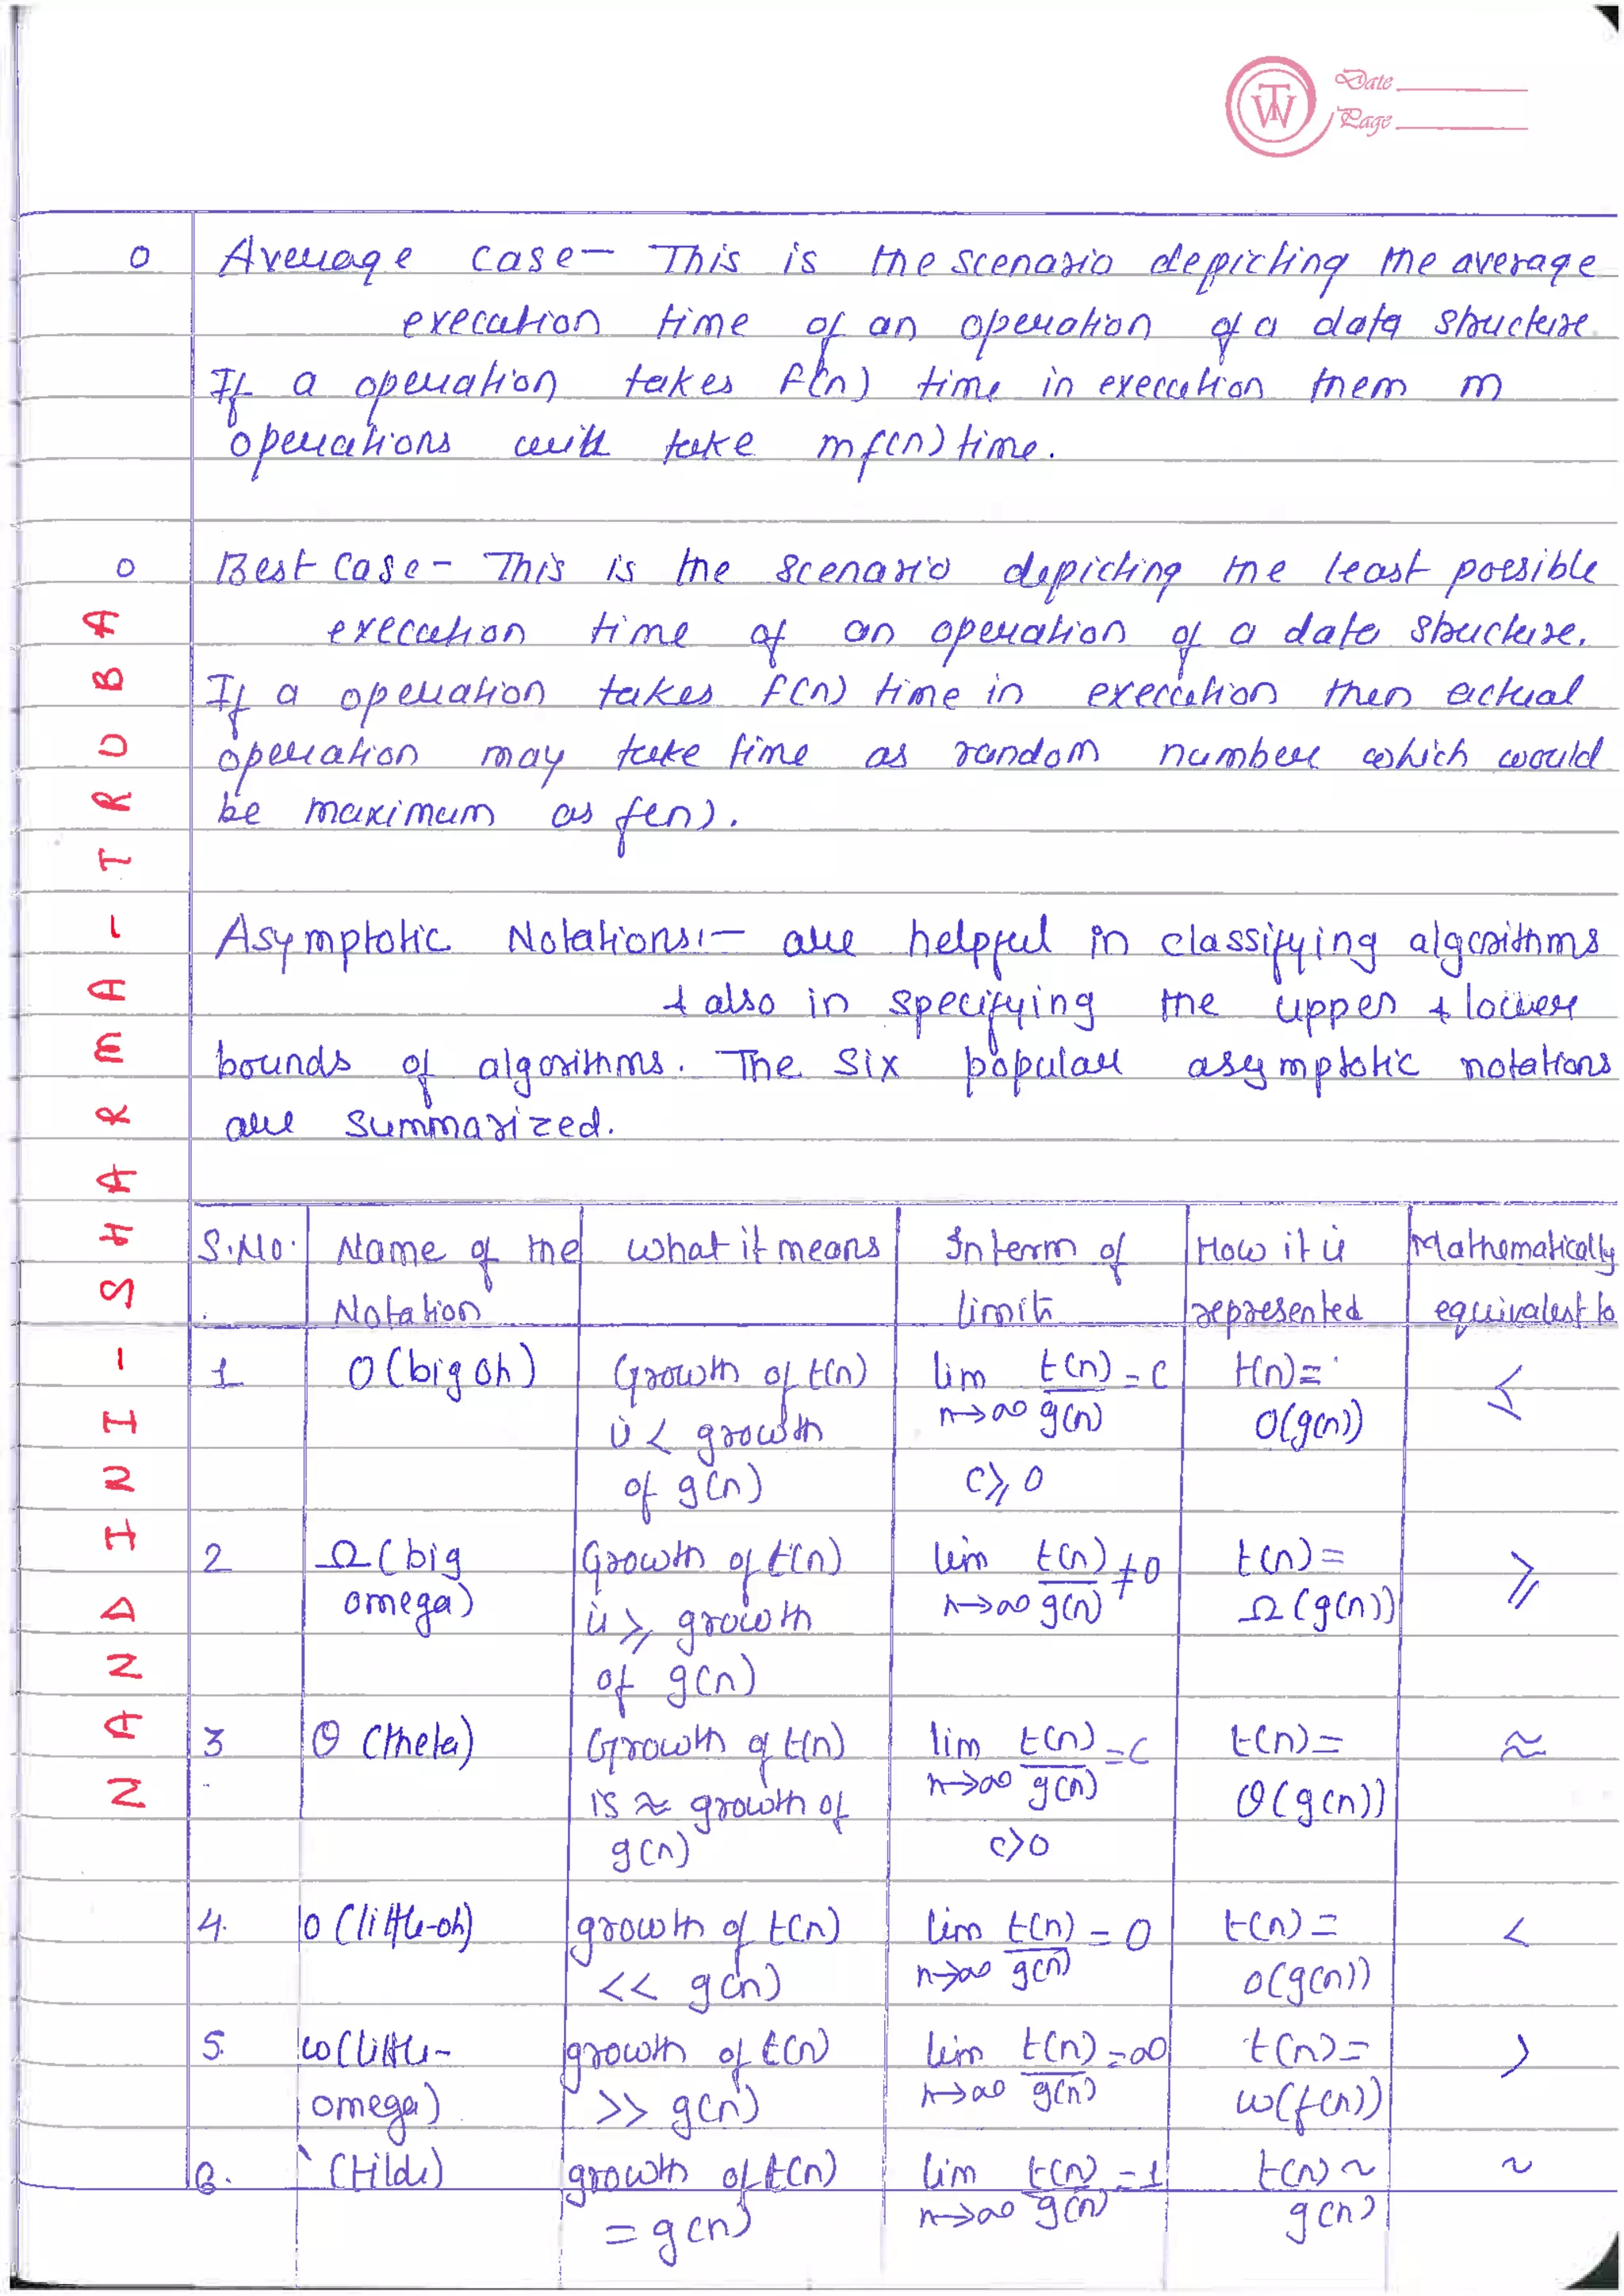 TW Date
Page
o Average case— This is the scenario depicting the average
execution time of an operation of a data structure.
If a operation takes F(n) time in execution them m
operations will take mf(n) time.
o Best Case - This is the scenario depicting the least possible
execution time of an operation of a data structure.
If a operation takes F(n) time in execution then actual
operation may take time as random number which would
be maximum as f(n).
Asymptotic Notations:— are helpful in classifying algorithms
& also in specifying the upper & lower
bounds of algorithms. The Six popular asymptotic notations
are summarized.
S.No. Name of the Notation What it means In term of limit How it is represented Mathematically equivalent to
1 O (big oh) Growth of t(n) is < growth of g(n) lim n→∞ t(n)/g(n) = c c ≥ 0 t(n) = O(g(n)) ≤
2 Ω (big omega) Growth of t(n) is ≥ growth of g(n) lim n→∞ t(n)/g(n) ≠ 0 t(n) = Ω(g(n)) ≥
3 Θ (theta) Growth of t(n) is ≈ growth of g(n) lim n→∞ t(n)/g(n) = c c>0 t(n) = Θ(g(n)) ≈
4. o (little-oh) growth of t(n) << g(n) lim n→∞ t(n)/g(n) = 0 t(n) = o(g(n)) <
5. ω (little-omega) growth of t(n) >> g(n) lim n→∞ t(n)/g(n) = ∞ t(n) = ω(f(n)) >
6. ` (tilde) growth of t(n) = g(n) lim n→∞ t(n)/g(n) = 1 t(n) ~ g(n) ~
NANDINI-SHAREAI-TROBA